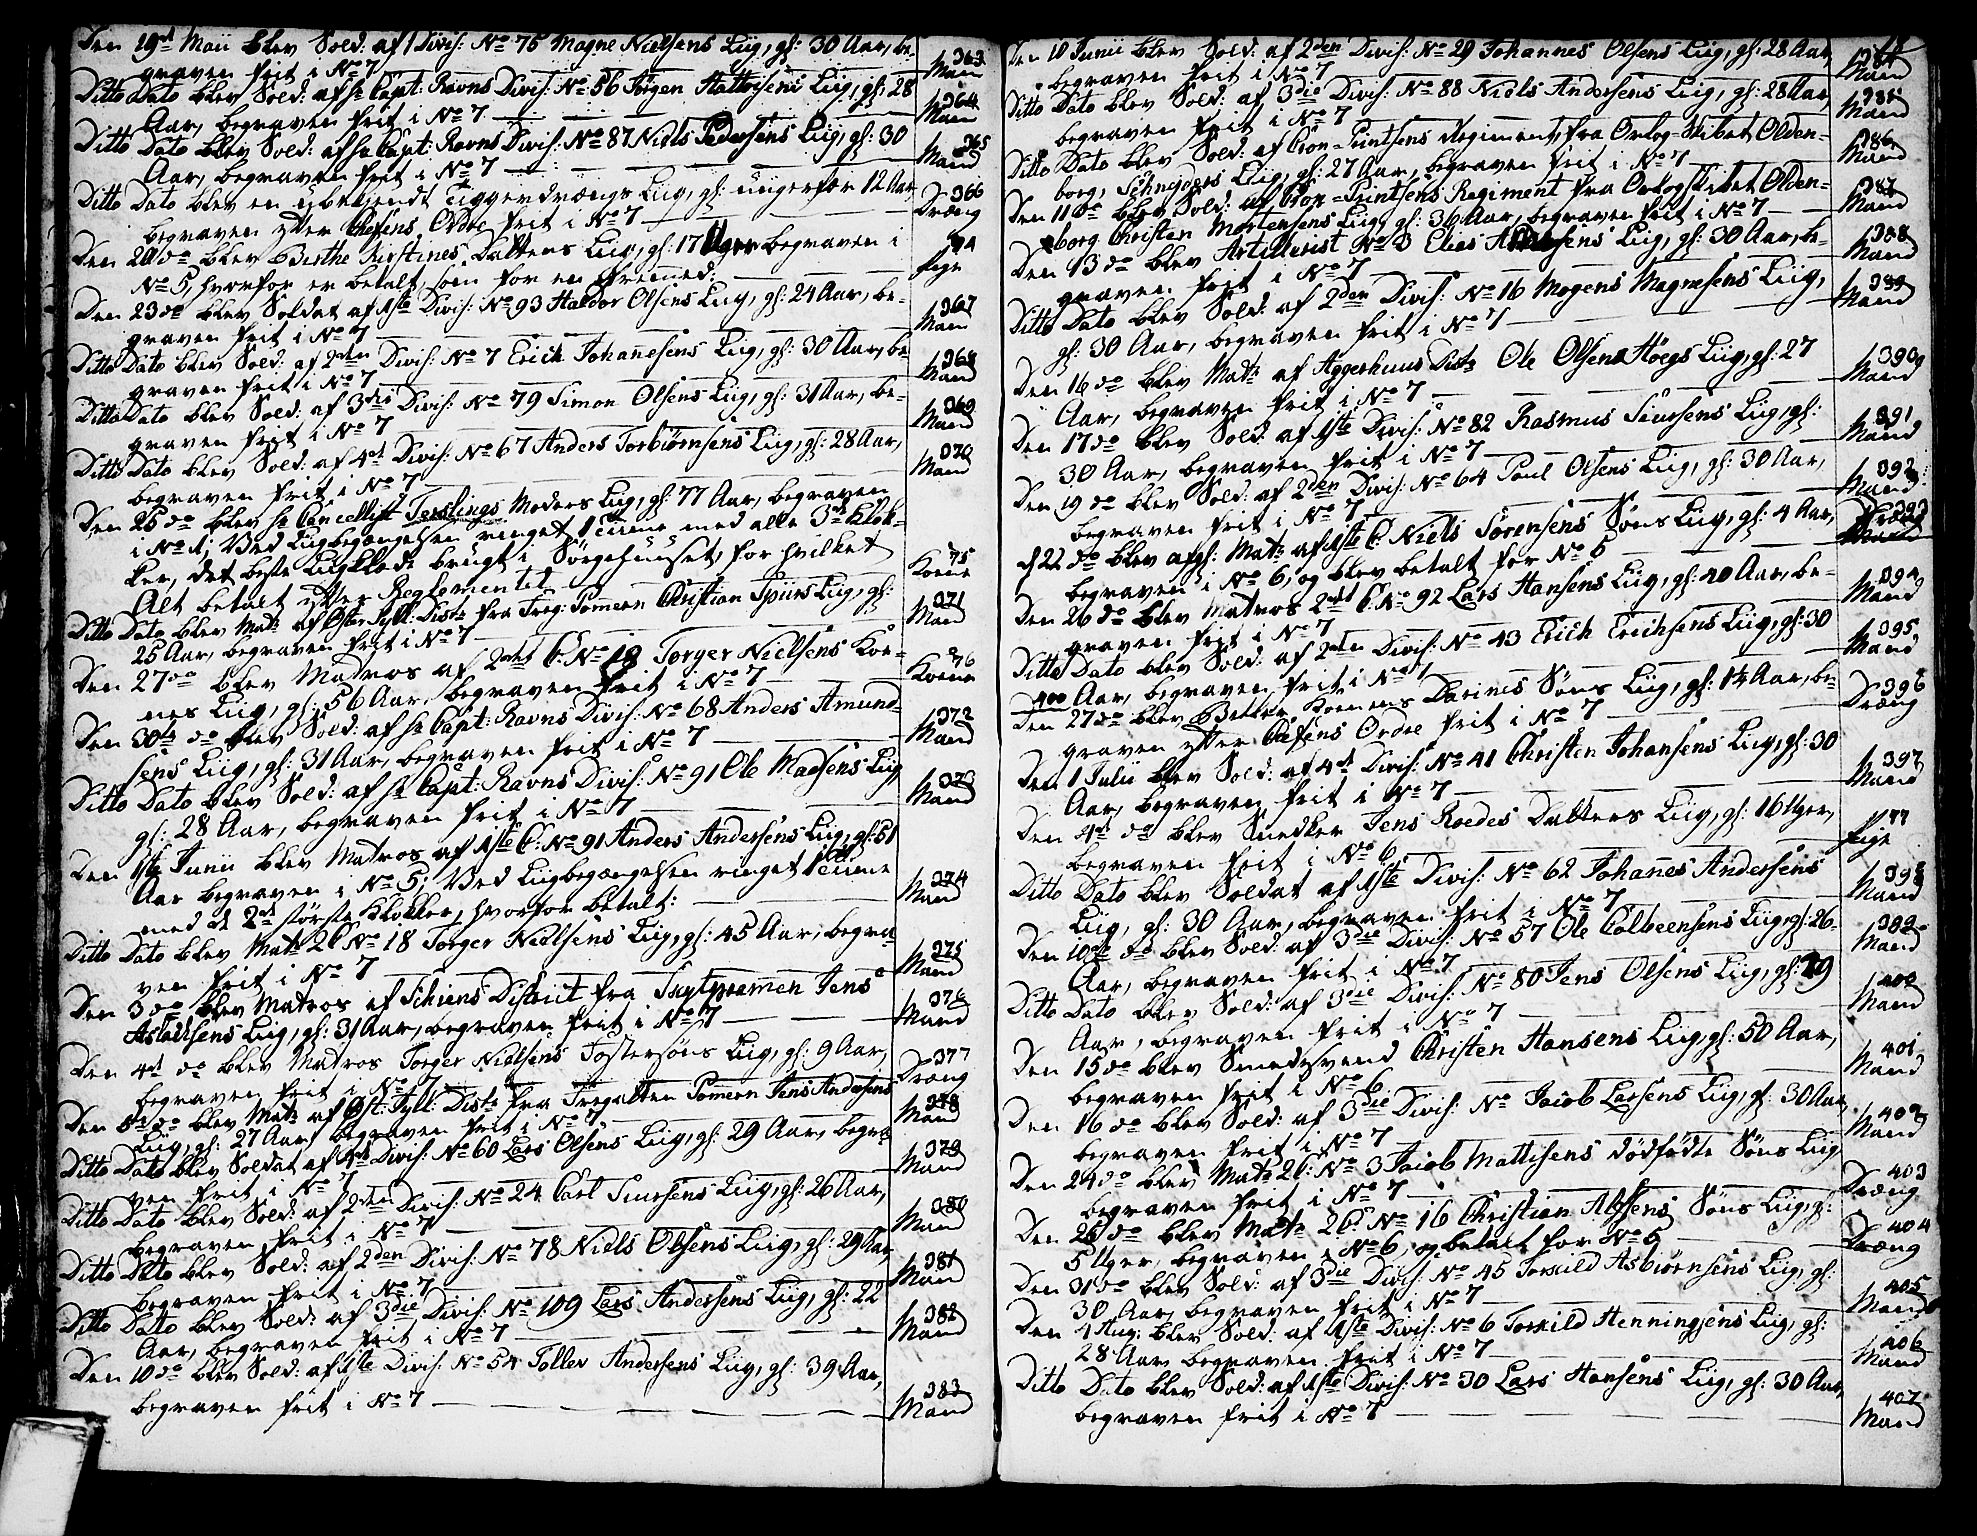 Den 19d Maii blev Sold: af 1 Divis: No 75 Magne Nielsens Liig, gl: 30 Aar, be-
graven frit i No 7
363
Mand
Ditto Dato blev Sold: af Hr Capt: Ravns Divis: No 56 Jørgen Liig, gl: 28
Aar, begraven frit i No 7
364
Mand
Ditto Dato blev Sold: af Hr Capt: Ravns Divis: No 87 Niels Pedersens Liig, gl: 30
Aar, begraven frit i No 7
365
Mand
Ditto Dato blev en ubekjendt Tiggerdrængs Liig, gl: ungerfær 12 Aar
begraven efter Chefens Ordre frit i No 7
366
Dræng
Den 20 do blev Berthe Kirstines Datters Liig, gl: 17 Uger begraven i
No 5, hvorfor er betalt som for en fremed:
74
Pige
Den 23 do blev Soldat af 1ste Divis: No 93 Haldor Olsens Liig, gl: 24 Aar, be-
graven frit i No 7
367
Mand
Ditto Dato blev Sold: af 2den Divis: No 7 Erich Johanesens Liig, gl: 30 Aar, be
graven frit i No 7
368
Mand
Ditto Dato blev Sold: af 3die Divis: No 79 Simon Olsens Liig, gl: 31 Aar, be-
graven frit i No 7
369
Mand
Ditto Dato blev Sold: af 4de Divis: No 67 Anders Torbiørnsens Liig, gl: 28 Aar,
begraven frit i No 7
370
Mand
Den 26 do blev Hr Cancellist Terslings Moders Liig, gl: 77 Aar, begraven
i No 1; Ved Liigbegængelsen ringet 1 Time med alle 3de Klok-
ker, det beste Liigklæde brugt i Sørgehuuset, for hvilket
Alt betalt efter Reglementet
75
Kone
Ditto Dato blev Matr af Øster Jyll: Distr fra Freg: Pomern Christian Spürs Liig, gl:
25 Aar, begraven frit i No 7
371
Mand
Den 27 do blev Matros af 2det C: No 18 Torger Nielsens Kor-
nes Liig, gl: 56 Aar, begraven frit i No 7
76
Kone
Den 30te do blev Sold: af Hr Capt: Ravns Divis: No 68 Anders Amund-
sens Liig, gl: 31 Aar, begraven frit i No 7
372
Mand
Ditto Dato blev Sold: af Hr Capt: Ravns Divis: No 91 Ole Madsens Liig
gl: 28 Aar, begraven frit i No 7
373
Mand
Den 1ste Junii blev Matros af 1ste C: No 91 Anders Andersens Liig, gl: 51
Aar begraven i No 5; Ved Liigbegængelsen ringet 1 Time
med de 2de største Klokker, hvorfor betalt:
374
Mand
Ditto Dato blev Matr 2 C No 18 Torger Nielsens Liig, gl: 45 Aar, begra-
ven frit i No 7
375
Mand
Den 3 do blev Matros af Schiens District fra Skytpramen Jens
Aslachsens Liig, gl: 31 Aar, begraven frit i No 7
376
Mand
Den 4de do blev Matros Torger Nielsens Fostersøns Liig, gl: 9 Aar,
begraven frit i No 7
377
Dræng
Den 8de do blev Matr af Øst: Jyll: Distr fra Fregatten Pomern Jens Andersens
Liig, gl: 27 Aar, begraven frit i No 7
378
Mand
Ditto Dato blev Soldat af 4de Divis: No 60 Lars Olsens Liig, gl: 29 Aar, begra-
ven frit i No 7
379
Mand
Ditto Dato blev Sold: af 2den Divis: No 24 Carl Siursens Liig, gl: 26 Aar,
begraven frit i No 7
380
Mand
Ditto Dato blev Sold: af 2den Divis: No 78 Niels Olsens Liig, gl: 29 Aar,
begraven frit i No 7
381
Mand
Ditto Dato blev Sold: af 3die Divis: No 109 Lars Andersens Liig, gl: 22
Aar, begraven frit i No 7
382
Mand
Den 10 do blev Sold: af 1ste Divis: No 54 Tollev Andersens Liig, gl: 39 Aar,
begraven frit i No 7
383
Mand
Den 10 Junii blev Sold: af 2den Divis: No 29 Johannes Olsens Liig, gl: 28 Aar,
begraven frit i No 7
384
Mand
Ditto Dato blev Sold: af 3die Divis: No 88 Niels Andersens Liig, gl: 28 Aar,
begraven frit i No 7
385
Mand
Ditto Dato blev Sold: af Cron-Printsens Regiment, fra Orlog-Skibet Olden-
borg, Schneyders Liig, gl: 27 Aar, begraven frit i No 7
386
Mand
Den 11 do blev Sold: af Cron-Printsens Regiment fra Orlogskibet Olden-
borg Christen Mortensens Liig, gl: 36 Aar, begraven frit i No 7
387
Mand
Den 13 do blev Artillerist No 3 Elias Liig, gl: 30 Aar, be-
graven frit i No 7
388
Mand
Ditto Dato blev Sold: af 2den Divis: No 16 Mogens Magnesens Liig,
gl: 30 Aar, begraven frit i No 7
389
Mand
Den 16 do blev Matr af Aggerhuus Distr Ole Olsen Høegs Liig, gl: 27
Aar, begraven frit i No 7
390
Mand
Den 17 do blev Sold: af 1ste Divis: No 82 Rasmus Siursens Liig, gl:
30 Aar, begraven frit i No 7
391
Mand
Den 19 do blev Sold: af 2den Divis: No 64 Poul Olsens Liig, gl: 30 Aar,
begraven frit i No 7
392
Mand
d 22 do blev afgl: Matr af 1ste C: Niels Sørensens Søns Liig, gl: 4 Aar,
begraven i No 6, og blev betalt for No 5
393
Dræng
Den 26 do blev Matros 2det C: No 92 Lars Hansens Liig, gl: 40 Aar, be-
graven frit i No 7
394
Mand
Ditto Dato blev Sold: af 2den Divis: No 43 Erich Erichsens Liig, gl: 30
Aar, begraven frit i No 7
395
Mand
400
Den 27 do blev Konens Karines Søns Liig, gl: 14 Aar, be-
graven efter Chefens Ordre frit i No 7
396
Dræng
Den 1 Julii blev Sold: af 4de Divis: No 41 Christen Johansens Liig, gl: 30
Aar, begraven frit i No 7
397
Mand
Den 4de do blev Snedker Jens Roedes Datters Liig, gl: 16 Uger,
begraven frit i No 6
77
Pige
Ditto Dato blev Soldat af 1ste Divis: No 62 Johanes Andersens
Liig, gl: 30 Aar, begraven frit i No 7
398
Mand
Den 10de do blev Sold: af 3die Divis: No 57 Ole Colbeensens Liig, gl: 26
Aar, begraven frit i No 7
399
Mand
Ditto Dato blev Sold: af 3die Divis: No 80 Jens Olsens Liig, gl: 29
Aar, begraven frit i No 7
400
Mand
Den 15 do blev Smedesvend Christen Hansens Liig, gl: 50 Aar,
begraven frit i No 6
401
Mand
Den 16 do blev Sold: af 3die Divis: No Jacob Larsens Liig, gl: 30 Aar,
begraven frit i No 7
402
Mand
Den 24 do blev Matr 2 C: No 3 Jacob Mattisens dødfødte Søns Liig
begraven frit i No 7
403
Dræng
Den 26 do blev Matr 2 C: No 16 Christian Søns Liig, gl:
5 Uger, begraven i No 6, og betalt for No 5
404
Dræng
Den 31 do blev Sold: af 3die Divis: No 45 Torkild Asbiørnsens Liig, gl:
30 Aar, begraven frit i No 7
405
Mand
Den 1 Aug: blev Sold: af 1ste Divis: No 6 Torkild Henningsens Liig, gl:
28 Aar, begraven frit i No 7
406
Mand
Ditto Dato blev Sold: af 1ste Divis: No 30 Lars Hansens Liig, gl: 30 Aar,
begraven frit i No 7
407
Mand